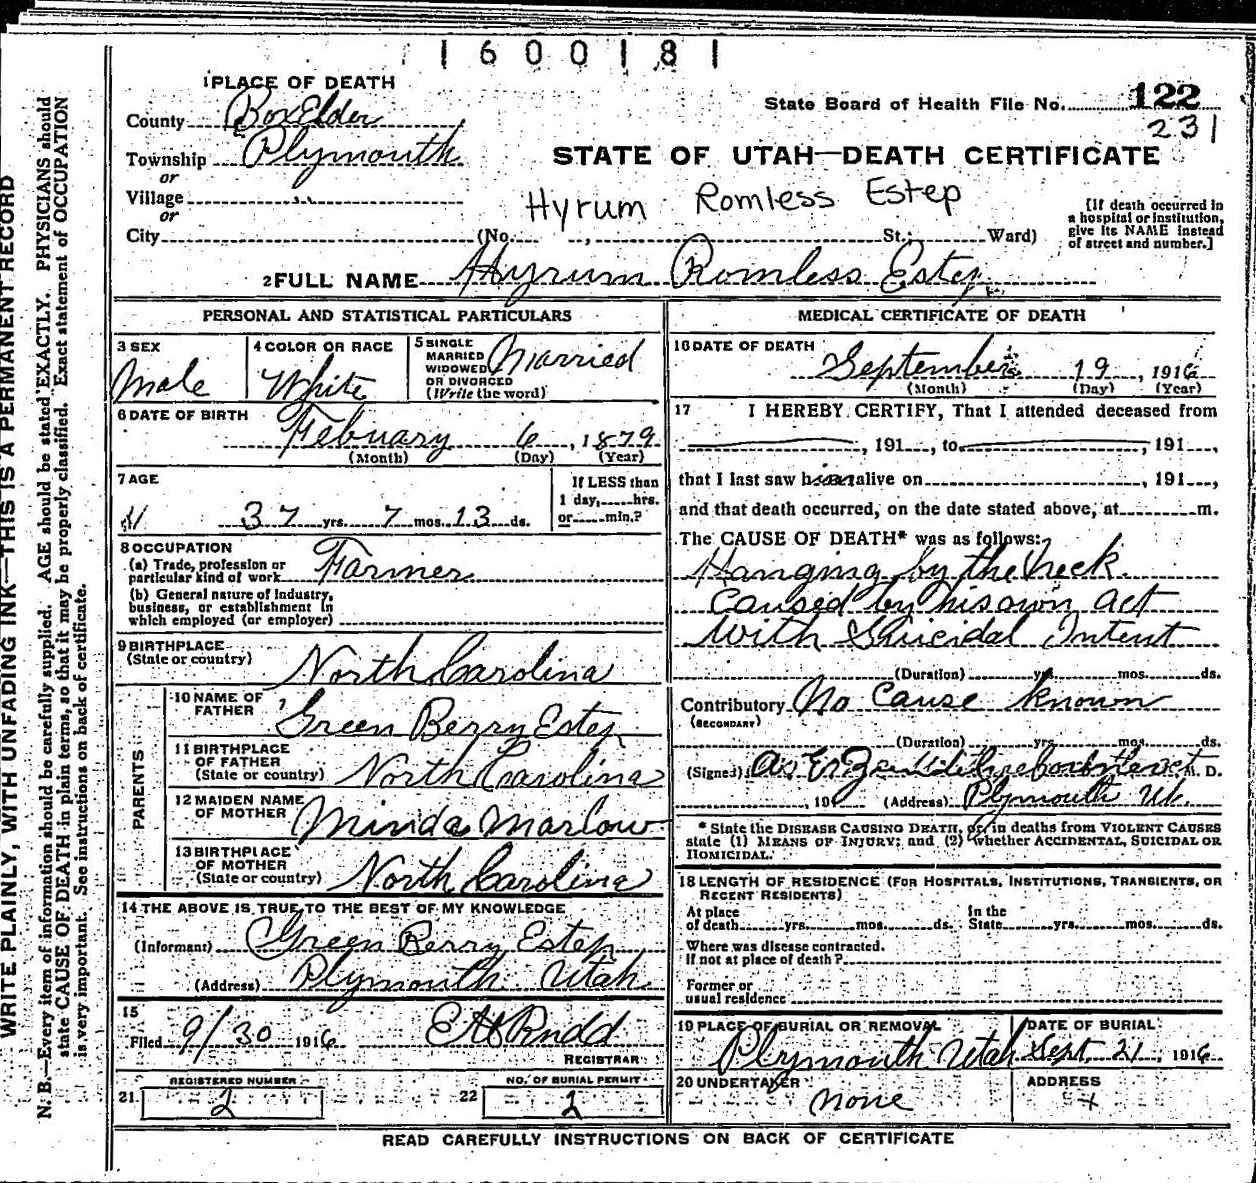 1600181
1 PLACE OF DEATH
State Board of Health File No. 122
231
County Box Elder
Township Plymouth
or
Village
or
City (No. , St.; Ward)
STATE OF UTAH—DEATH CERTIFICATE
Hyrum Romless Estep
[If death occurred in
a hospital or institution,
give its NAME instead
of street and number.]
2 FULL NAME Hyrum Romless Estep
PERSONAL AND STATISTICAL PARTICULARS
3 SEX
Male
4 COLOR OR RACE
White
5 SINGLE
MARRIED
WIDOWED
OR DIVORCED
(Write the word)
Married
6 DATE OF BIRTH
Febuary 6, 1879
(Month) (Day) (Year)
7 AGE
37 yrs. 7 mos. 13 ds.
If LESS than
1 day, hrs.
or min.?
8 OCCUPATION
(a) Trade, profession or
particular kind of work Farmer
(b) General nature of industry,
business, or establishment in
which employed (or employer)
9 BIRTHPLACE
(State or country) North Carolina
PARENTS
10 NAME OF
FATHER Green Berry Estep
11 BIRTHPLACE
OF FATHER
(State or country) North Carolina
12 MAIDEN NAME
OF MOTHER Minda Marlow
13 BIRTHPLACE
OF MOTHER
(State or country) North Carolina
14 THE ABOVE IS TRUE TO THE BEST OF MY KNOWLEDGE
(Informant) Green Berry Estep
(Address) Plymouth Utah
15
Filed 9/30 1916 E H Rudd
REGISTRAR
REGISTERED NUMBER
21. 2
NO. OF BURIAL PERMIT
22 2
MEDICAL CERTIFICATE OF DEATH
16 DATE OF DEATH
September 19, 1916
(Month) (Day) (Year)
17 I HEREBY CERTIFY, That I attended deceased from
, 191 , to , 191 ,
that I last saw him alive on , 191 ,
and that death occurred, on the date stated above, at m.
The CAUSE OF DEATH* was as follows:
Hanging by the Neck
Caused by his own act
with Suicidal Intent
(Duration) yrs. mos. ds.
Contributory No Cause known
(SECONDARY)
(Duration) yrs. mos. ds.
(Signed) M. D.
, 19 (Address) Plymouth Ut.
* State the DISEASE CAUSING DEATH, or, in deaths from VIOLENT CAUSES
state (1) MEANS OF INJURY; and (2) whether ACCIDENTAL, SUICIDAL OR
HOMICIDAL.
18 LENGTH OF RESIDENCE (FOR HOSPITALS, INSTITUTIONS, TRANSIENTS, OR
RECENT RESIDENTS)
At place
of death yrs. mos. ds.
In the
State yrs. mos. ds.
Where was disease contracted,
if not at place of death?
Former or
usual residence
19 PLACE OF BURIAL OR REMOVAL
Plymouth Utah
DATE OF BURIAL
Sept. 21, 1916
20 UNDERTAKER
none
ADDRESS
READ CAREFULLY INSTRUCTIONS ON BACK OF CERTIFICATE
WRITE PLAINLY, WITH UNFADING INK—THIS IS A PERMANENT RECORD
N. B.—Every item of information should be carefully supplied. AGE should be stated EXACTLY. PHYSICIANS should
state CAUSE OF DEATH in plain terms, so that it may be properly classified. Exact statement of OCCUPATION
is very important. See instructions on back of certificate.